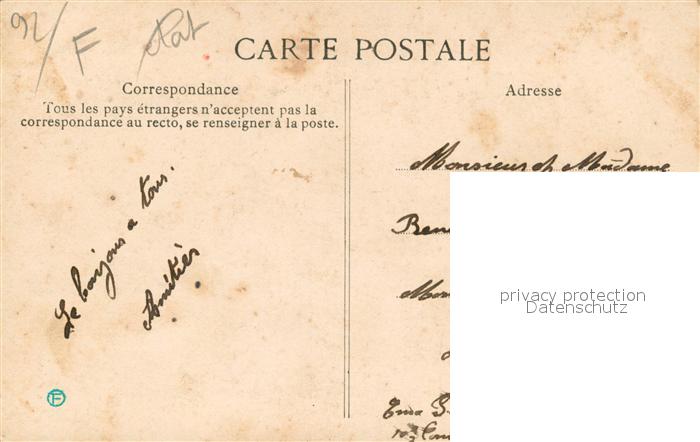 92/
F
CARTE POSTALE
Correspondance
Tous les pays étrangers n'acceptent pas la
correspondance au recto, se renseigner à la poste.
Adresse
Le bonjour a tous.
Amitiés
Monsieur et Madame
privacy protection
Datenschutz
F